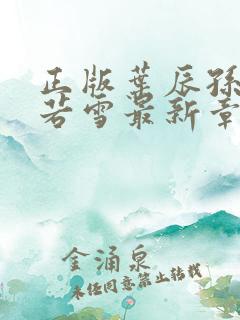 正版叶辰孙
若雪最新章
金涌泉
未经同意禁止转载